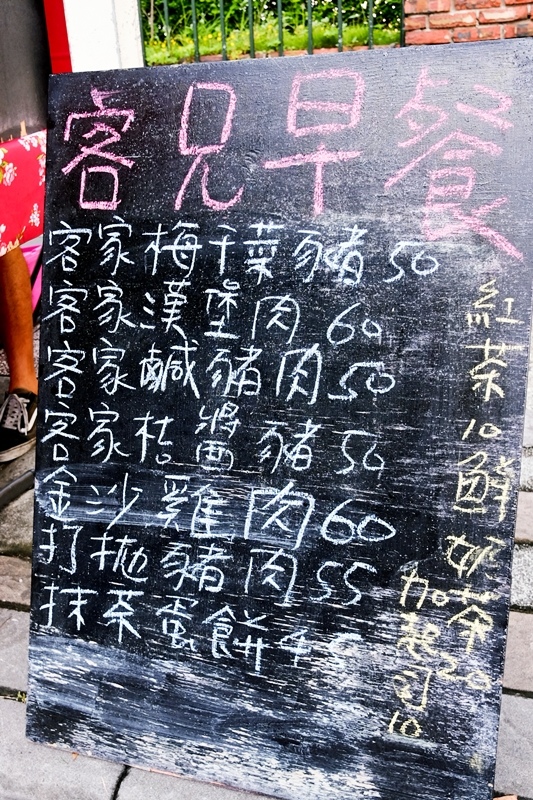 客兄早餐
客家梅干菜豬 50
客家漢堡肉 60
客家鹹豬肉 50
客家桔醬豬 50
金沙雞肉 60
打拋豬肉 55
抹茶蛋餅 45
紅茶10 鮮奶茶20
加起司10